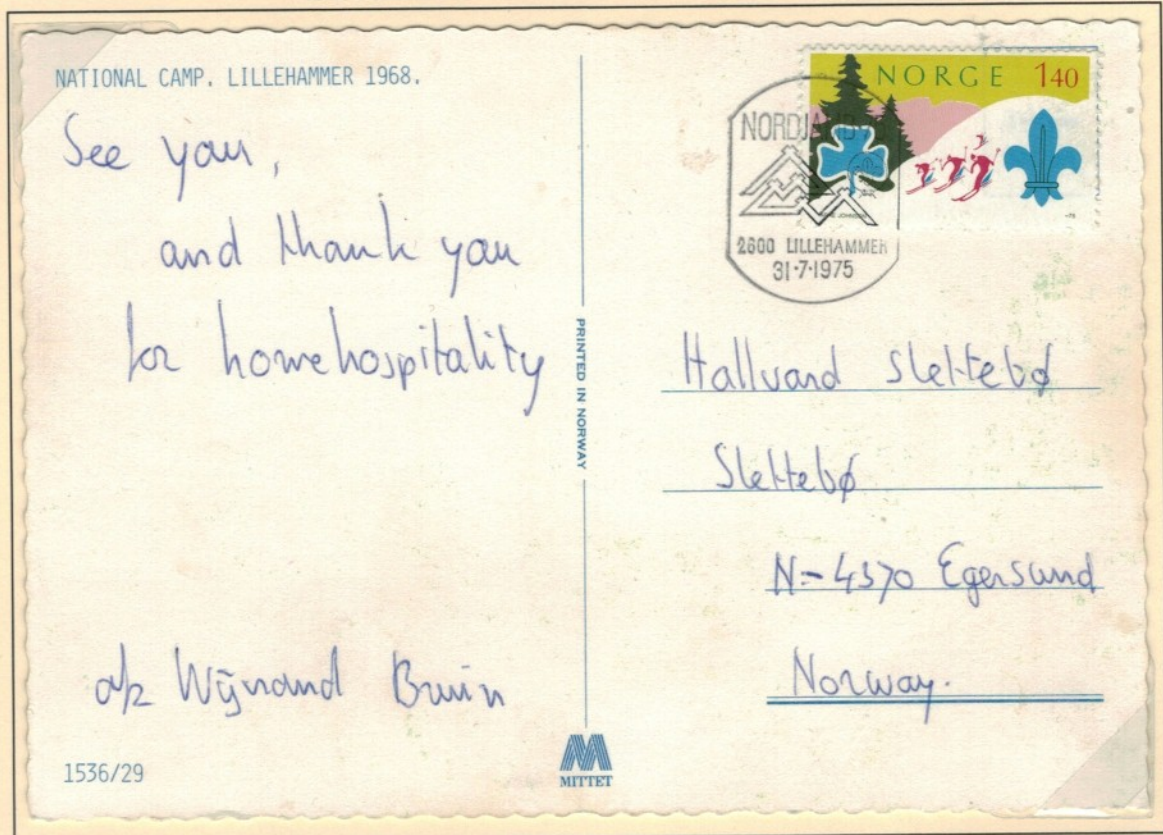 NATIONAL CAMP. LILLEHAMMER 1968.
See you,
and thank you
for homehospitality
Wijnand Bruin
1536/29
PRINTED IN NORWAY
MITTET
NORGE 140
2600 LILLEHAMMER
31·7·1975
Hallvard Slettebø
Slettebø
N-4370 Egersund
Norway.